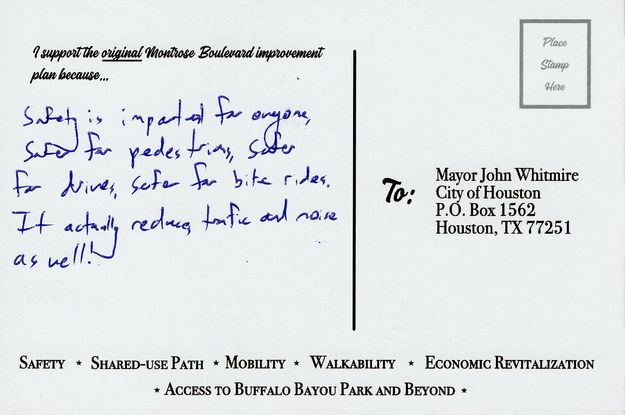 I support the original Montrose Boulevard improvement
plan because...
Safety is important for everyone,
Safer for pedestrians, safer
for drivers, safer for bike riders.
It actually reduces traffic and noise
as well!
Place
Stamp
Here
To:
Mayor John Whitmire
City of Houston
P.O. Box 1562
Houston, TX 77251
SAFETY ★ SHARED-USE PATH ★ MOBILITY ★ WALKABILITY ★ ECONOMIC REVITALIZATION
★ ACCESS TO BUFFALO BAYOU PARK AND BEYOND ★